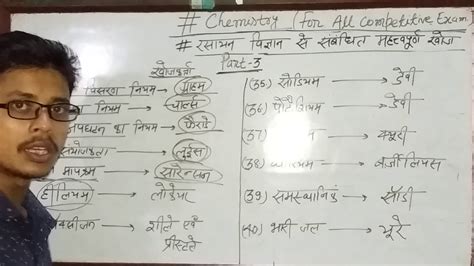 # Chemistry (For All Competitive Exam
# रसायन विज्ञान से संबंधित महत्वपूर्ण खोज
खोजकर्ता Part-3
नियम → ग्राहम
नियम → चार्ल्स
का नियम → फैराडे
→ लुईस
मापक्रम → सोरेन्सन
हीलियम → लोकेयर
→ शीले एवं
प्रीस्टले
(35) सोडियम → डेवी
(36) पोटैशियम → डेवी
(37) → क्यूरी
(38) → बर्जीलियस
(39) समस्थानिक → सॉडी
(40) भारी जल → यूरे